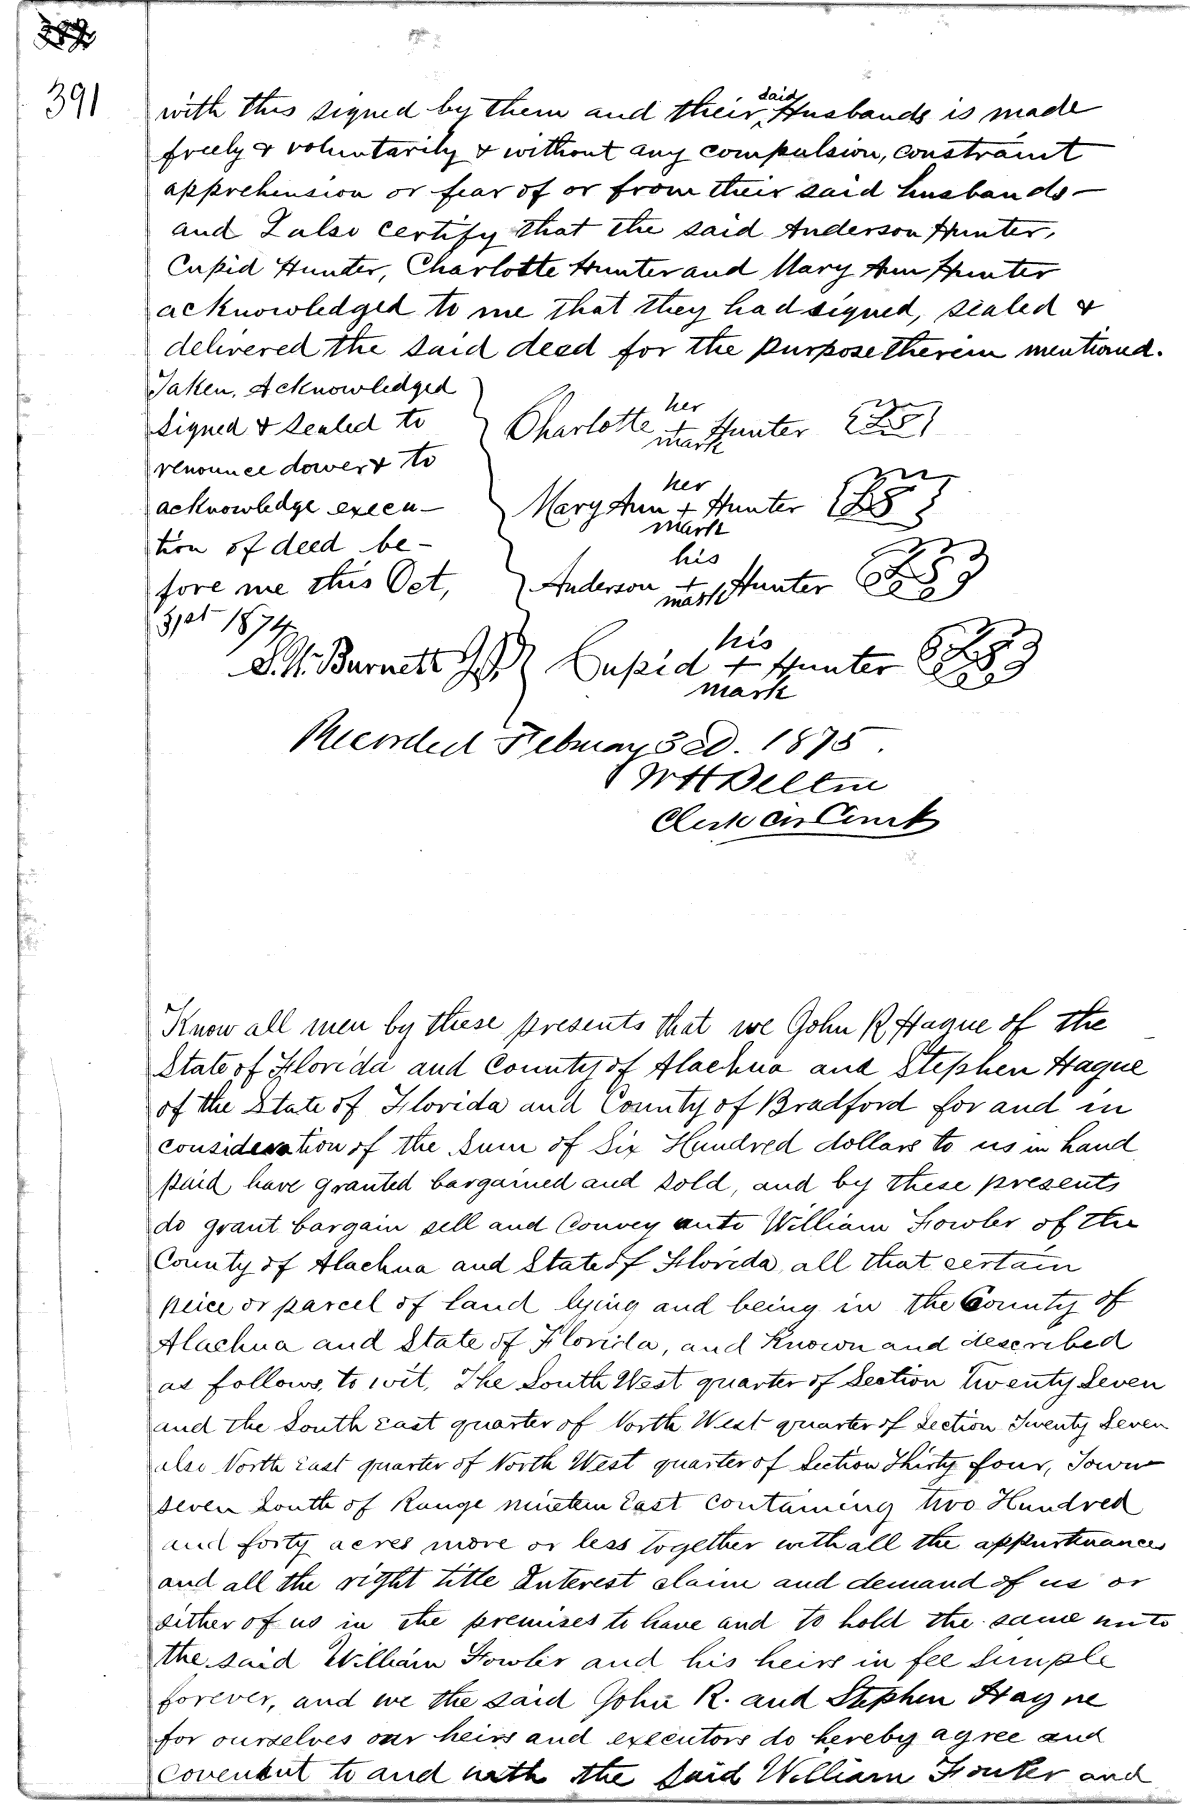 391
with this signed by them and their said Husbands is made
freely & voluntarily & without any compulsion, constraint
apprehension or fear of or from their said husbands —
and I also certify that the said Anderson Hunter,
Cupid Hunter, Charlotte Hunter and Mary Ann Hunter
acknowledged to me that they had signed, sealed &
delivered the said deed for the purpose therein mentioned.
Taken, Acknowledged
signed & sealed to
renounce dower & to
acknowledge execu-
tion of deed be-
fore me this Oct,
31st 1874
S. W. Burnett J.P.
her
Charlotte + Hunter LS
mark
her
Mary Ann + Hunter LS
mark
his
Anderson + Hunter LS
mark
his
Cupid + Hunter LS
mark
Recorded Febuary 3d. 1875.
W H Belton
Clerk Cir Court
Know all men by these presents that we John R Hague of the
State of Florida and County of Alachua and Stephen Hague
of the State of Florida and County of Bradford for and in
consideration of the sum of Six Hundred dollars to us in hand
paid, have granted bargained and sold, and by these presents
do grant bargain sell and convey unto William Fowler of the
County of Alachua and State of Florida, all that certain
peice or parcel of land lying and being in the County of
Alachua and State of Florida, and Known and described
as follows, to wit, The South West quarter of Section Twenty Seven
and the South East quarter of North West quarter of Section Twenty Seven
also North East quarter of North West quarter of Section Thirty four, Town
seven South of Range nineteen East containing two Hundred
and forty acres more or less together with all the appurtenances
and all the right title Interest claim and demand of us or
either of us in the premises to have and to hold the same unto
the said William Fowler and his heirs in fee simple
forever, and we the said John R. and Stephen Hague
for ourselves our heirs and executors do hereby agree and
covenant to and with the said William Fowler and